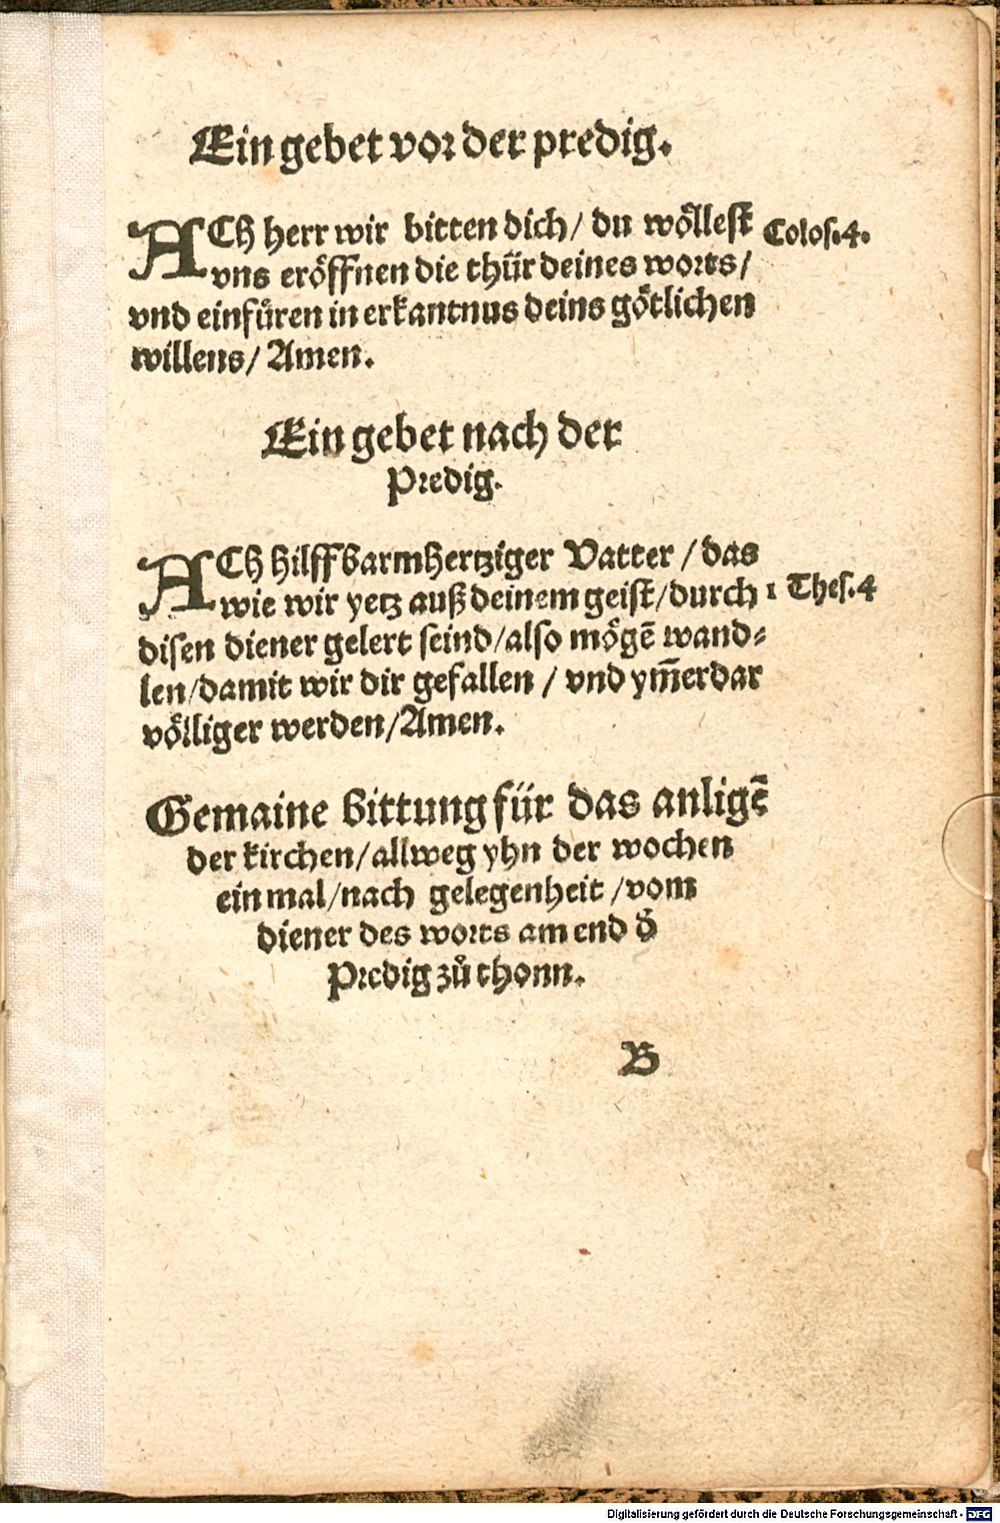 Ein gebet vor der predig.
ACh herr wir bitten dich/ du wöllest Colos.4.
vns eröffnen die thür deines worts/
vnd einfüren in erkantnus deins götlichen
willens/ Amen.
Ein gebet nach der
Predig.
ACh hilff barmhertziger Vatter / das
wie wir yetz auß deinem geist/durch 1 Thes.4
disen diener gelert seind/also mögē wand⸗
len/damit wir dir gefallen / vnd ym̄erdar
völliger werden/Amen.
Gemaine bittung für das anligē
der kirchen/allweg yhn der wochen
ein mal/nach gelegenheit /vom
diener des worts am end d̕
Predig zů thonn.
B
Digitalisierung gefördert durch die Deutsche Forschungsgemeinschaft - DFG